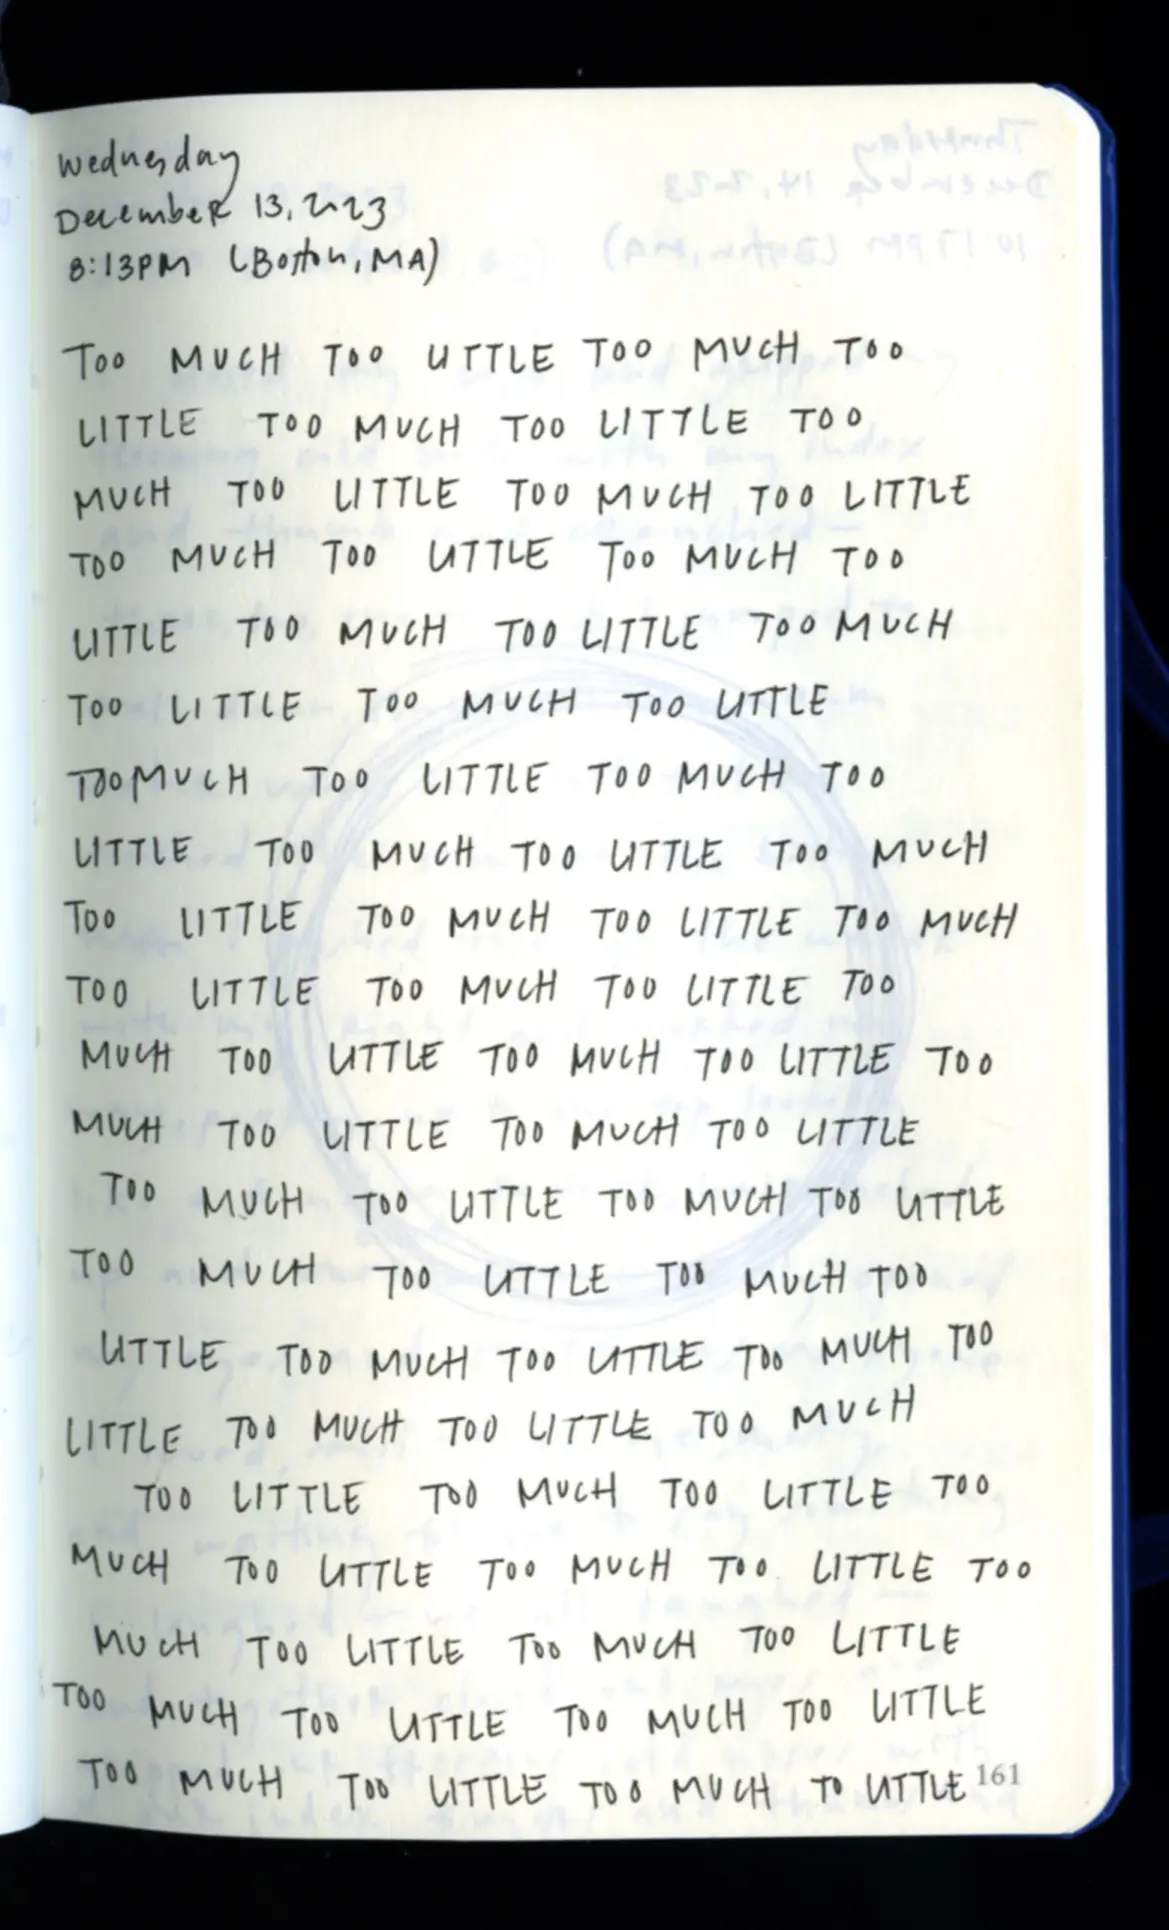 Wednesday
December 13, 2023
8:13PM (Boston, MA)
TOO MUCH TOO LITTLE TOO MUCH TOO
LITTLE TOO MUCH TOO LITTLE TOO
MUCH TOO LITTLE TOO MUCH TOO LITTLE
TOO MUCH TOO LITTLE TOO MUCH TOO
LITTLE TOO MUCH TOO LITTLE TOO MUCH
TOO LITTLE TOO MUCH TOO LITTLE
TOO MUCH TOO LITTLE TOO MUCH TOO
LITTLE TOO MUCH TOO LITTLE TOO MUCH
TOO LITTLE TOO MUCH TOO LITTLE TOO MUCH
TOO LITTLE TOO MUCH TOO LITTLE TOO
MUCH TOO LITTLE TOO MUCH TOO LITTLE TOO
MUCH TOO LITTLE TOO MUCH TOO LITTLE
TOO MUCH TOO LITTLE TOO MUCH TOO LITTLE
TOO MUCH TOO LITTLE TOO MUCH TOO
LITTLE TOO MUCH TOO LITTLE TOO MUCH TOO
LITTLE TOO MUCH TOO LITTLE TOO MUCH
TOO LITTLE TOO MUCH TOO LITTLE TOO
MUCH TOO LITTLE TOO MUCH TOO LITTLE TOO
MUCH TOO LITTLE TOO MUCH TOO LITTLE
TOO MUCH TOO LITTLE TOO MUCH TOO LITTLE
TOO MUCH TOO LITTLE TOO MUCH TO LITTLE
161